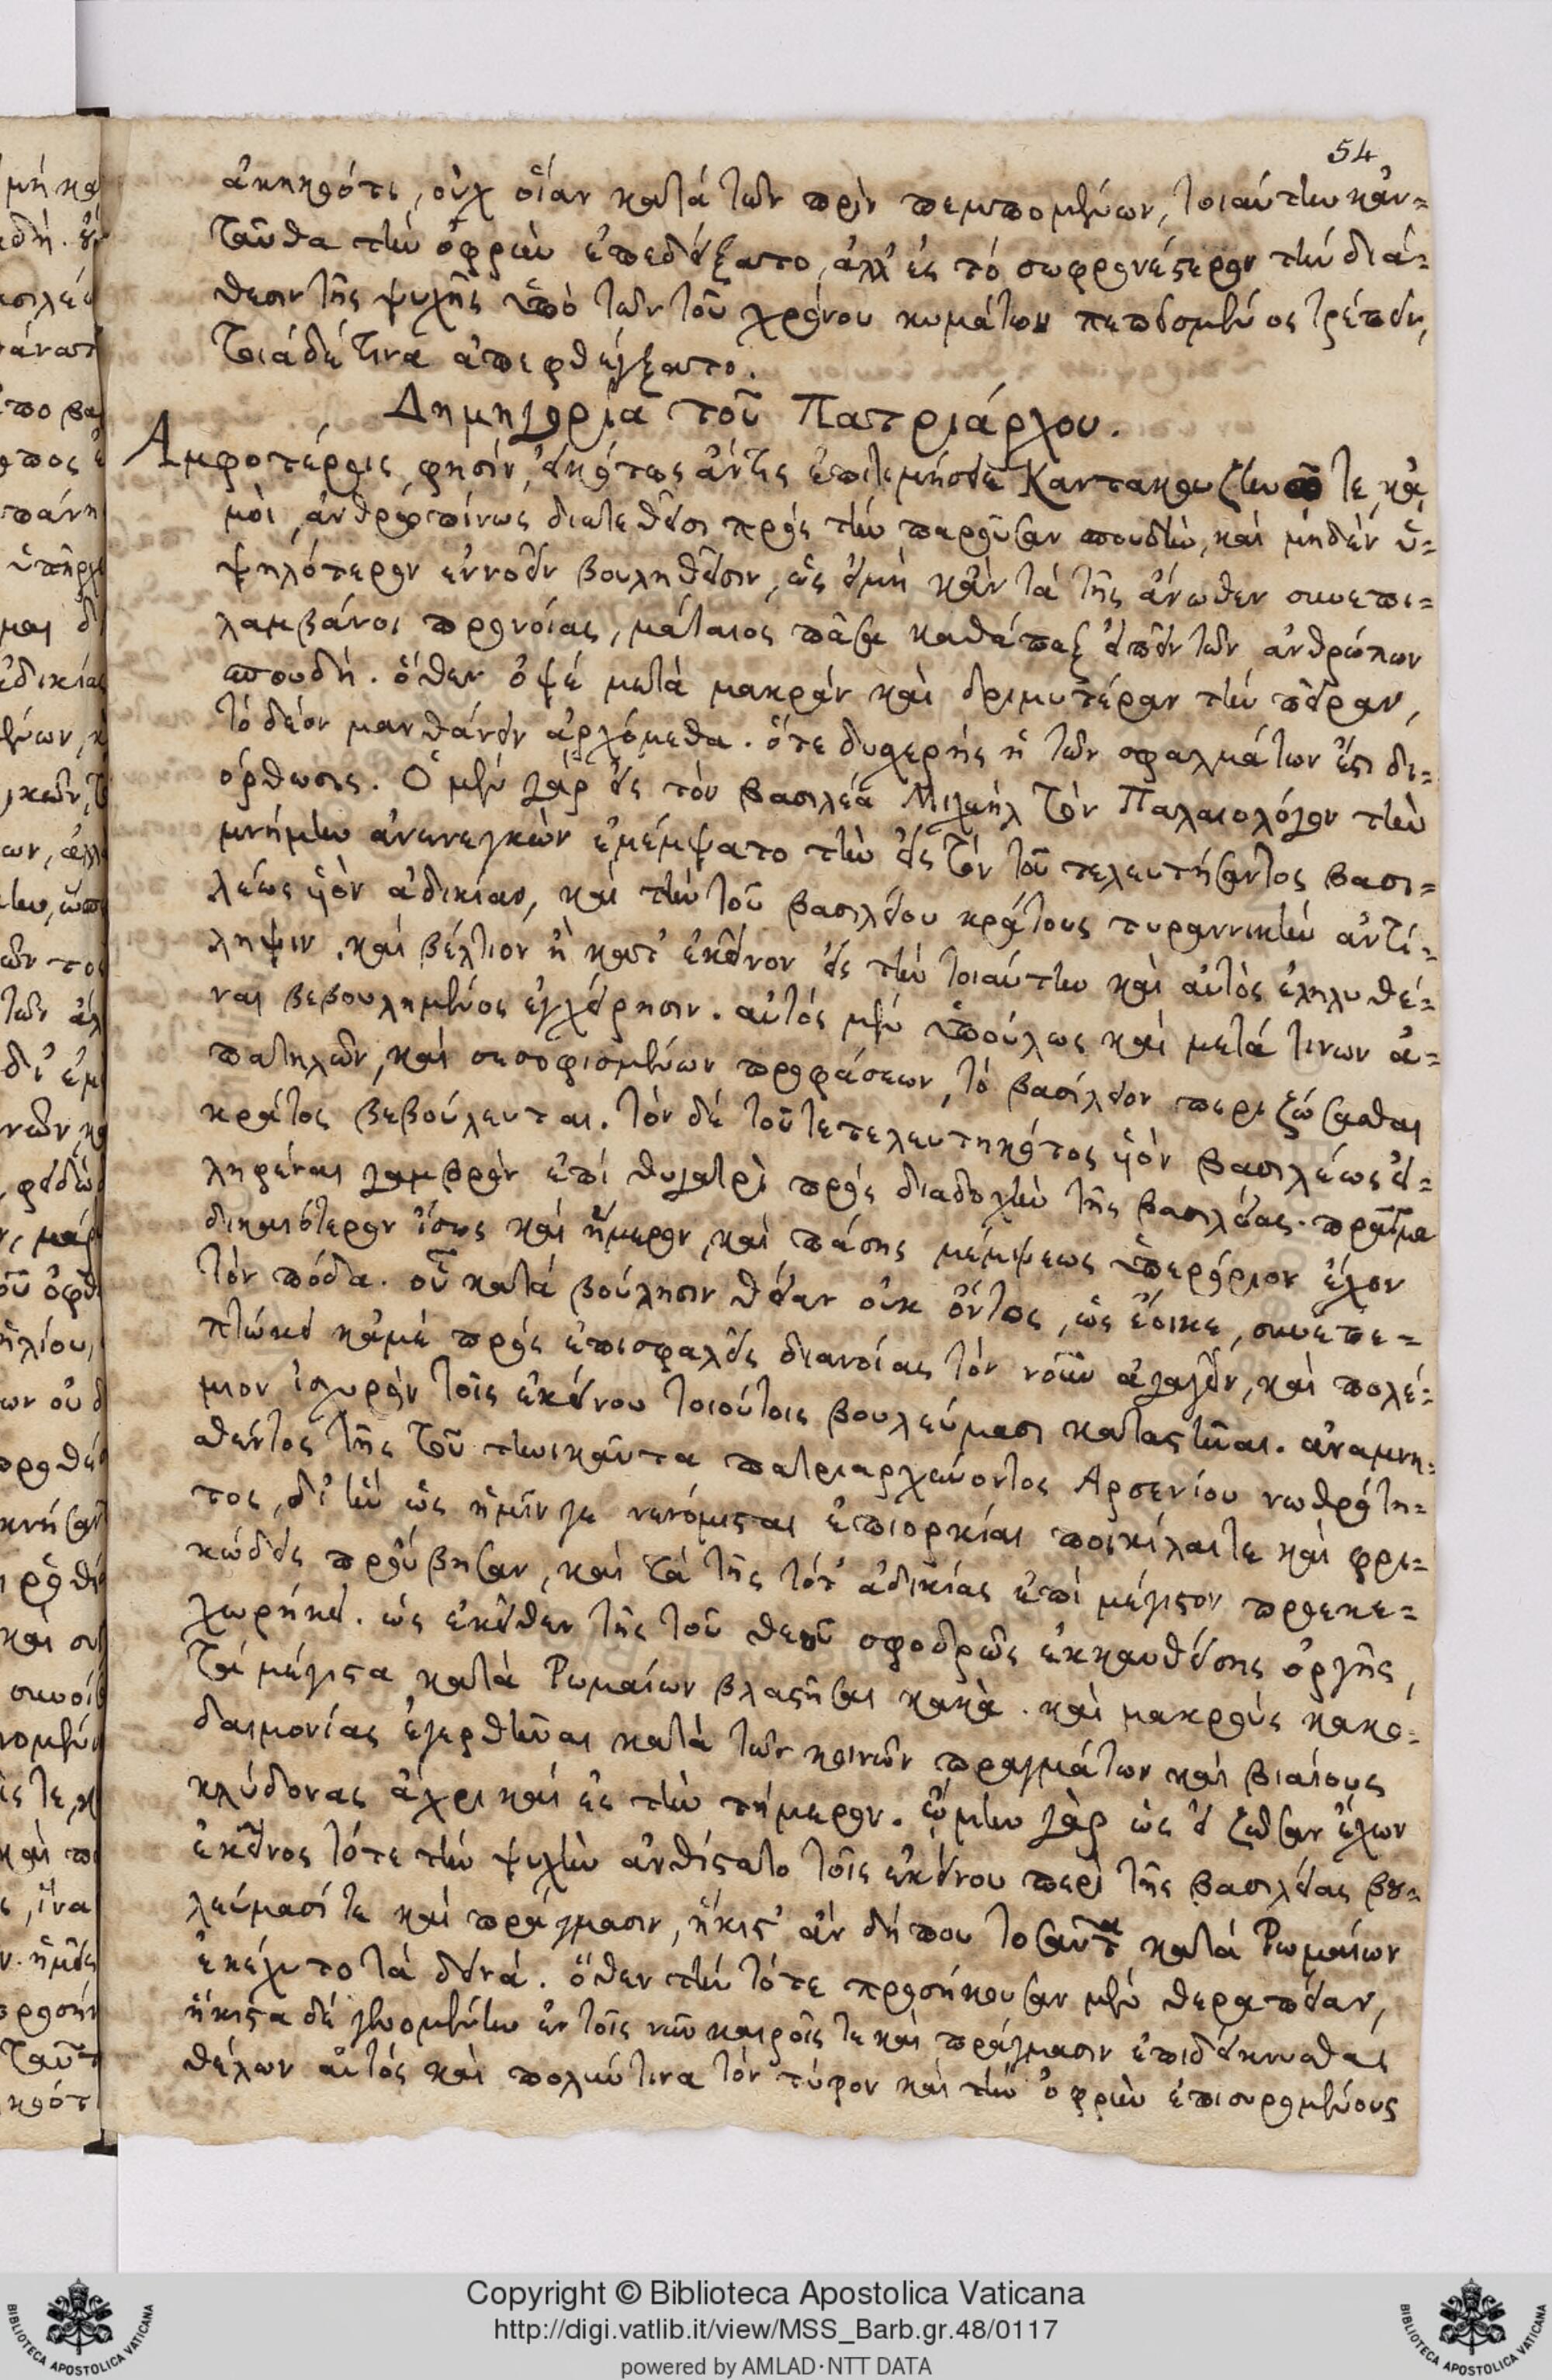 54
ἀκηκοότι, οὐχ οἵαν κατὰ τῶν πρὶν πεμπομένων, τοιαύτην κἀν=
ταῦθα τὴν ὀφρὺν ἐπεδείξατο, ἀλλ' ἐς τὸ σωφρονέστερον τὴν διά=
θεσιν τῆς ψυχῆς ὑπὸ τῶν τοῦ χρόνου κυμάτων πεπεισμένος τρέπειν,
τοιάδέ τινα ἀπεφθέγξατο.
Δημηγορία τοῦ Πατριάρχου.
Ἀμφοτέροις, φησὶν, εἰκότως ἄν τις ἐπιτιμήσειε Καντακουζηνῷ τε, κἀ
μοὶ, ἀνθρωπίνως διατεθεῖσι πρὸς τὴν παροῦσαν σπουδὴν, καὶ μηδὲν ὑ=
ψηλότερον ἐννοεῖν βουληθεῖσιν, ὡς εἰ μὴ κἂν τὰ τῆς ἄνωθεν συνεπι=
λαμβάνοι προνοίας, μάταιος πᾶσα καθάπαξ εἰπεῖν τῶν ἀνθρώπων
σπουδή. ὅθεν ὀψὲ μετὰ μακρὰν καὶ δριμυτέραν τὴν πεῖραν,
τὸ δέον μανθάνειν ἀρχόμεθα. ὅτε δυσχερὴς ἡ τῶν σφαλμάτων ἐστὶ δι=
όρθωσις. Ὁ μὲν γὰρ εἰς τὸν βασιλέα Μιχαὴλ τὸν Παλαιολόγον τὴν
μνήμην ἀνενεγκὼν ἐμέμψατο τὴν εἰς τὸν τοῦ τελευτήσαντος βασι=
λέως ὑὸν ἀδικίαν, καὶ τὴν τοῦ βασιλείου κράτους τυραννικὴν ἀντί=
ληψιν. καὶ βέλτιον ἢ κατ' ἐκεῖνον εἰς τὴν τοιαύτην καὶ αὐτὸς ἐληλυθέ=
ναι βεβουλημένος ἐγχείρησιν. αὐτὸς μὲν ὑπούλως καὶ μετά τινων ἀ=
πατηλῶν, καὶ σεσοφισμένων προφάσεων, τὸ βασίλειον περιζώσασθαι
κράτος βεβούλευται. τὸν δὲ τοῦ τετελευτηκότος ὑὸν βασιλέως εἰ=
ληφέναι γαμβρὸν ἐπὶ θυγατρὶ πρὸς διαδοχὴν τῆς βασιλείας. πρᾶγμα
δικαιότερον ἴσως καὶ ἥμερον, καὶ πάσης μέμψεως ὑπερόριον ἔχον
τὸν πόδα. οὗ κατὰ βούλησιν θείαν οὐκ ὄντος, ὡς ἔοικε, συνεπε=
πτώκει κἀμὲ πρὸς ἐπισφαλεῖς διανοίας τὸν νοῦν ἀγαγεῖν, καὶ πολέ=
μιον ἰσχυρὸν τοῖς ἐκείνου τοιούτοις βουλεύμασι καταστῆναι. ἀναμνη=
σθέντος τῆς τοῦ τηνικαῦτα πατριαρχεύοντος Ἀρσενίου νωθρότη=
τος, δι' ἣν ὡς ἡμῖν γε νενόμισται ἐπιορκίαι ποικίλαι τε καὶ φρι=
κώδεις προὔβησαν, καὶ τὰ τῆς τότ' ἀδικίας ἐπὶ μέγιστον προεκε=
χωρήκει. ὡς ἐκεῖθεν τῆς τοῦ θεοῦ σφοδρῶς ἐκκαυθείσης ὀργῆς,
τὰ μέγιστα κατὰ Ῥωμαίων βλαστῆσαι κακὰ. καὶ μακροὺς κακο=
δαιμονίας ἐγερθῆναι κατὰ τῶν κοινῶν πραγμάτων καὶ βιαίους
κλύδονας ἄχρι καὶ ἐς τὴν τήμερον. ᾤμην γὰρ ὡς εἰ ζέουσαν ἔχων
ἐκεῖνος τότε τὴν ψυχὴν ἀνθίστατο τοῖς ἐκείνου περὶ τῆς βασιλείας βου=
λεύμασί τε καὶ πράγμασιν, ἥκιστ' ἂν δήπου τοσαῦτα κατὰ Ῥωμαίων
ἐκέχυτο τὰ δεινά. ὅθεν τὴν τότε προσήκουσαν μὲν θεραπείαν,
ἥκιστα δὲ γενομένην ἐν τοῖς νῦν καιροῖς τε καὶ πράγμασιν ἐπιδείκνυσθαι
θέλων αὐτὸς καὶ πολλήν τινα τὸν τύφον καὶ τὴν ὀφρὺν ἐπισυρομένους
Copyright © Biblioteca Apostolica Vaticana
http://digi.vatlib.it/view/MSS_Barb.gr.48/0117
powered by AMLAD·NTT DATA
BIBLIOTECA APOSTOLICA VATICANA
BIBLIOTECA APOSTOLICA VATICANA